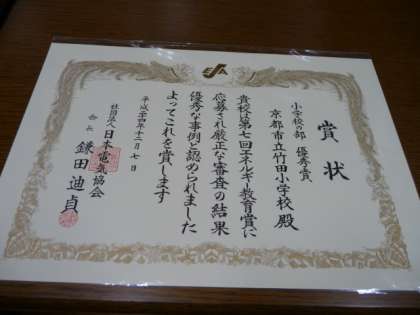 賞状
小学校の部 優秀賞
京都市立竹田小学校 殿
貴校は第七回エネルギー教育賞に
応募され厳正な審査の結果
優秀な事例と認められました
よってこれを賞します
平成二十四年十二月七日
社団法人日本電気協会
会長 鎌田迪貞